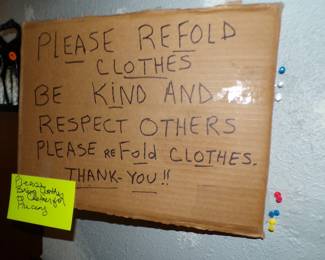 PLEASE REFOLD
CLOTHES
BE KIND AND
RESPECT OTHERS
PLEASE REFold CLOTHES.
THANK-YOU!!
Please
bring clothes
to